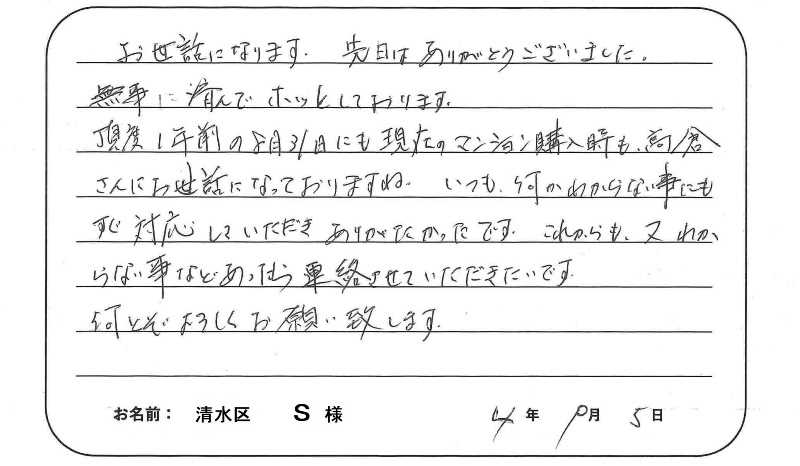 お世話になります. 先日は ありがとうございました。
無事に済んで ホッとしております.
頂度1年前の8月31日にも現在のマンション購入時も、高ノ倉
さんにお世話になっておりますね. いつも、何かわからない事にも
すぐ対応していただきありがたかったです. これからも、又 わか
らない事などあったら連絡させていただきたいです.
何とぞよろしくお願い致します.
お名前: 清水区 S 様 4年 9月 5日